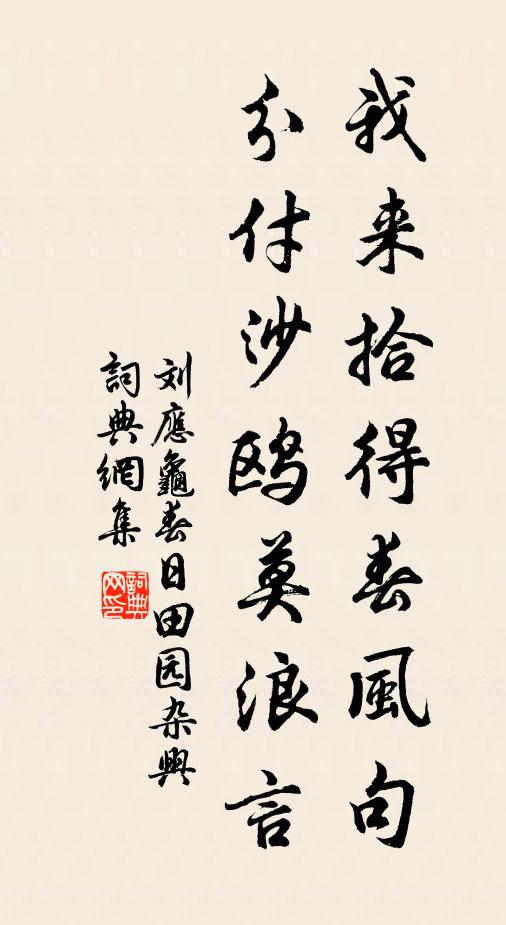 我来拾得春風句
分付沙鸥莫浪言
刘應龜春日田园杂興
詞典網集
詞典
网印